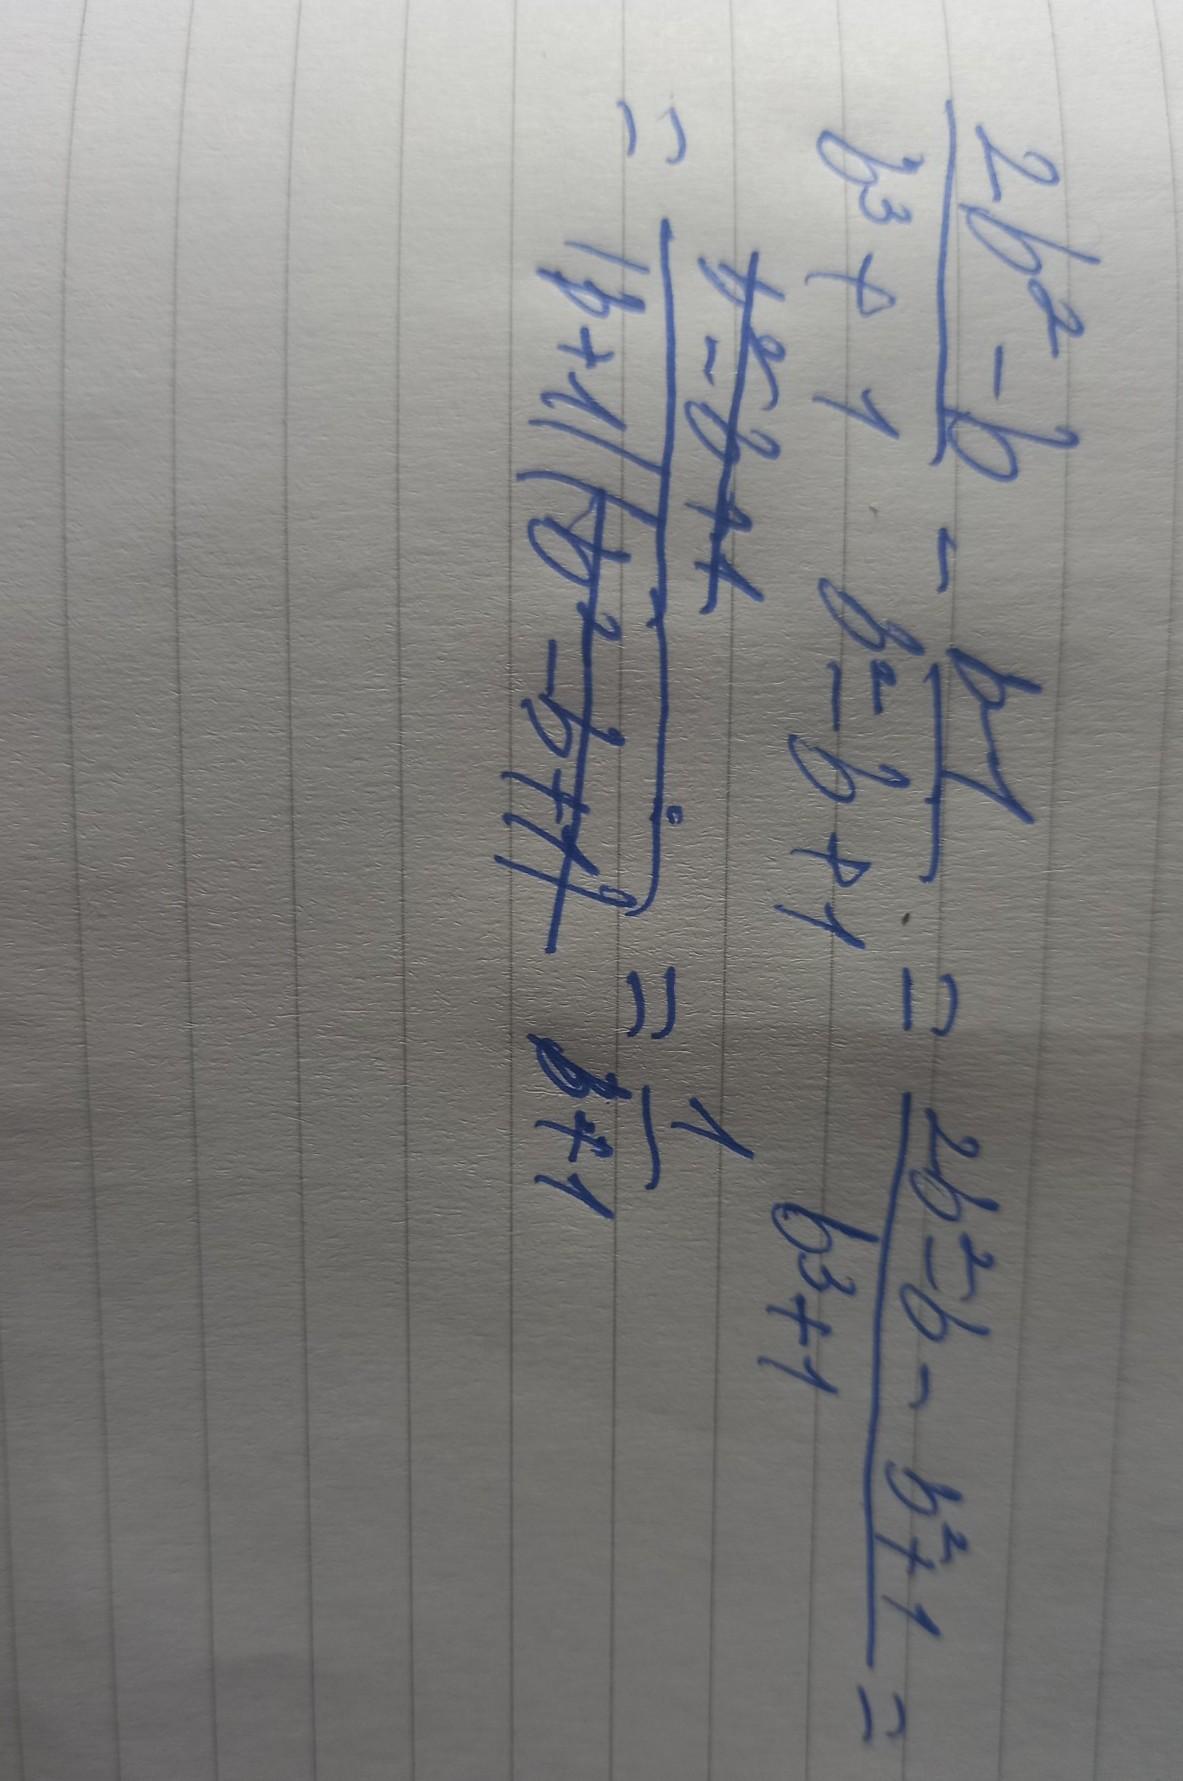 2b² - b / b³ + 1 - b-1 / b² - b + 1 = 2b² - b - b² + 1 / b³ + 1 =
= b² - b + 1 / (b+1)(b² - b + 1) = 1 / b+1